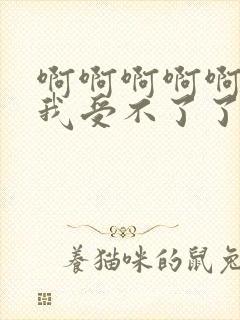 啊啊啊啊啊
我受不了了
养猫咪的鼠兔